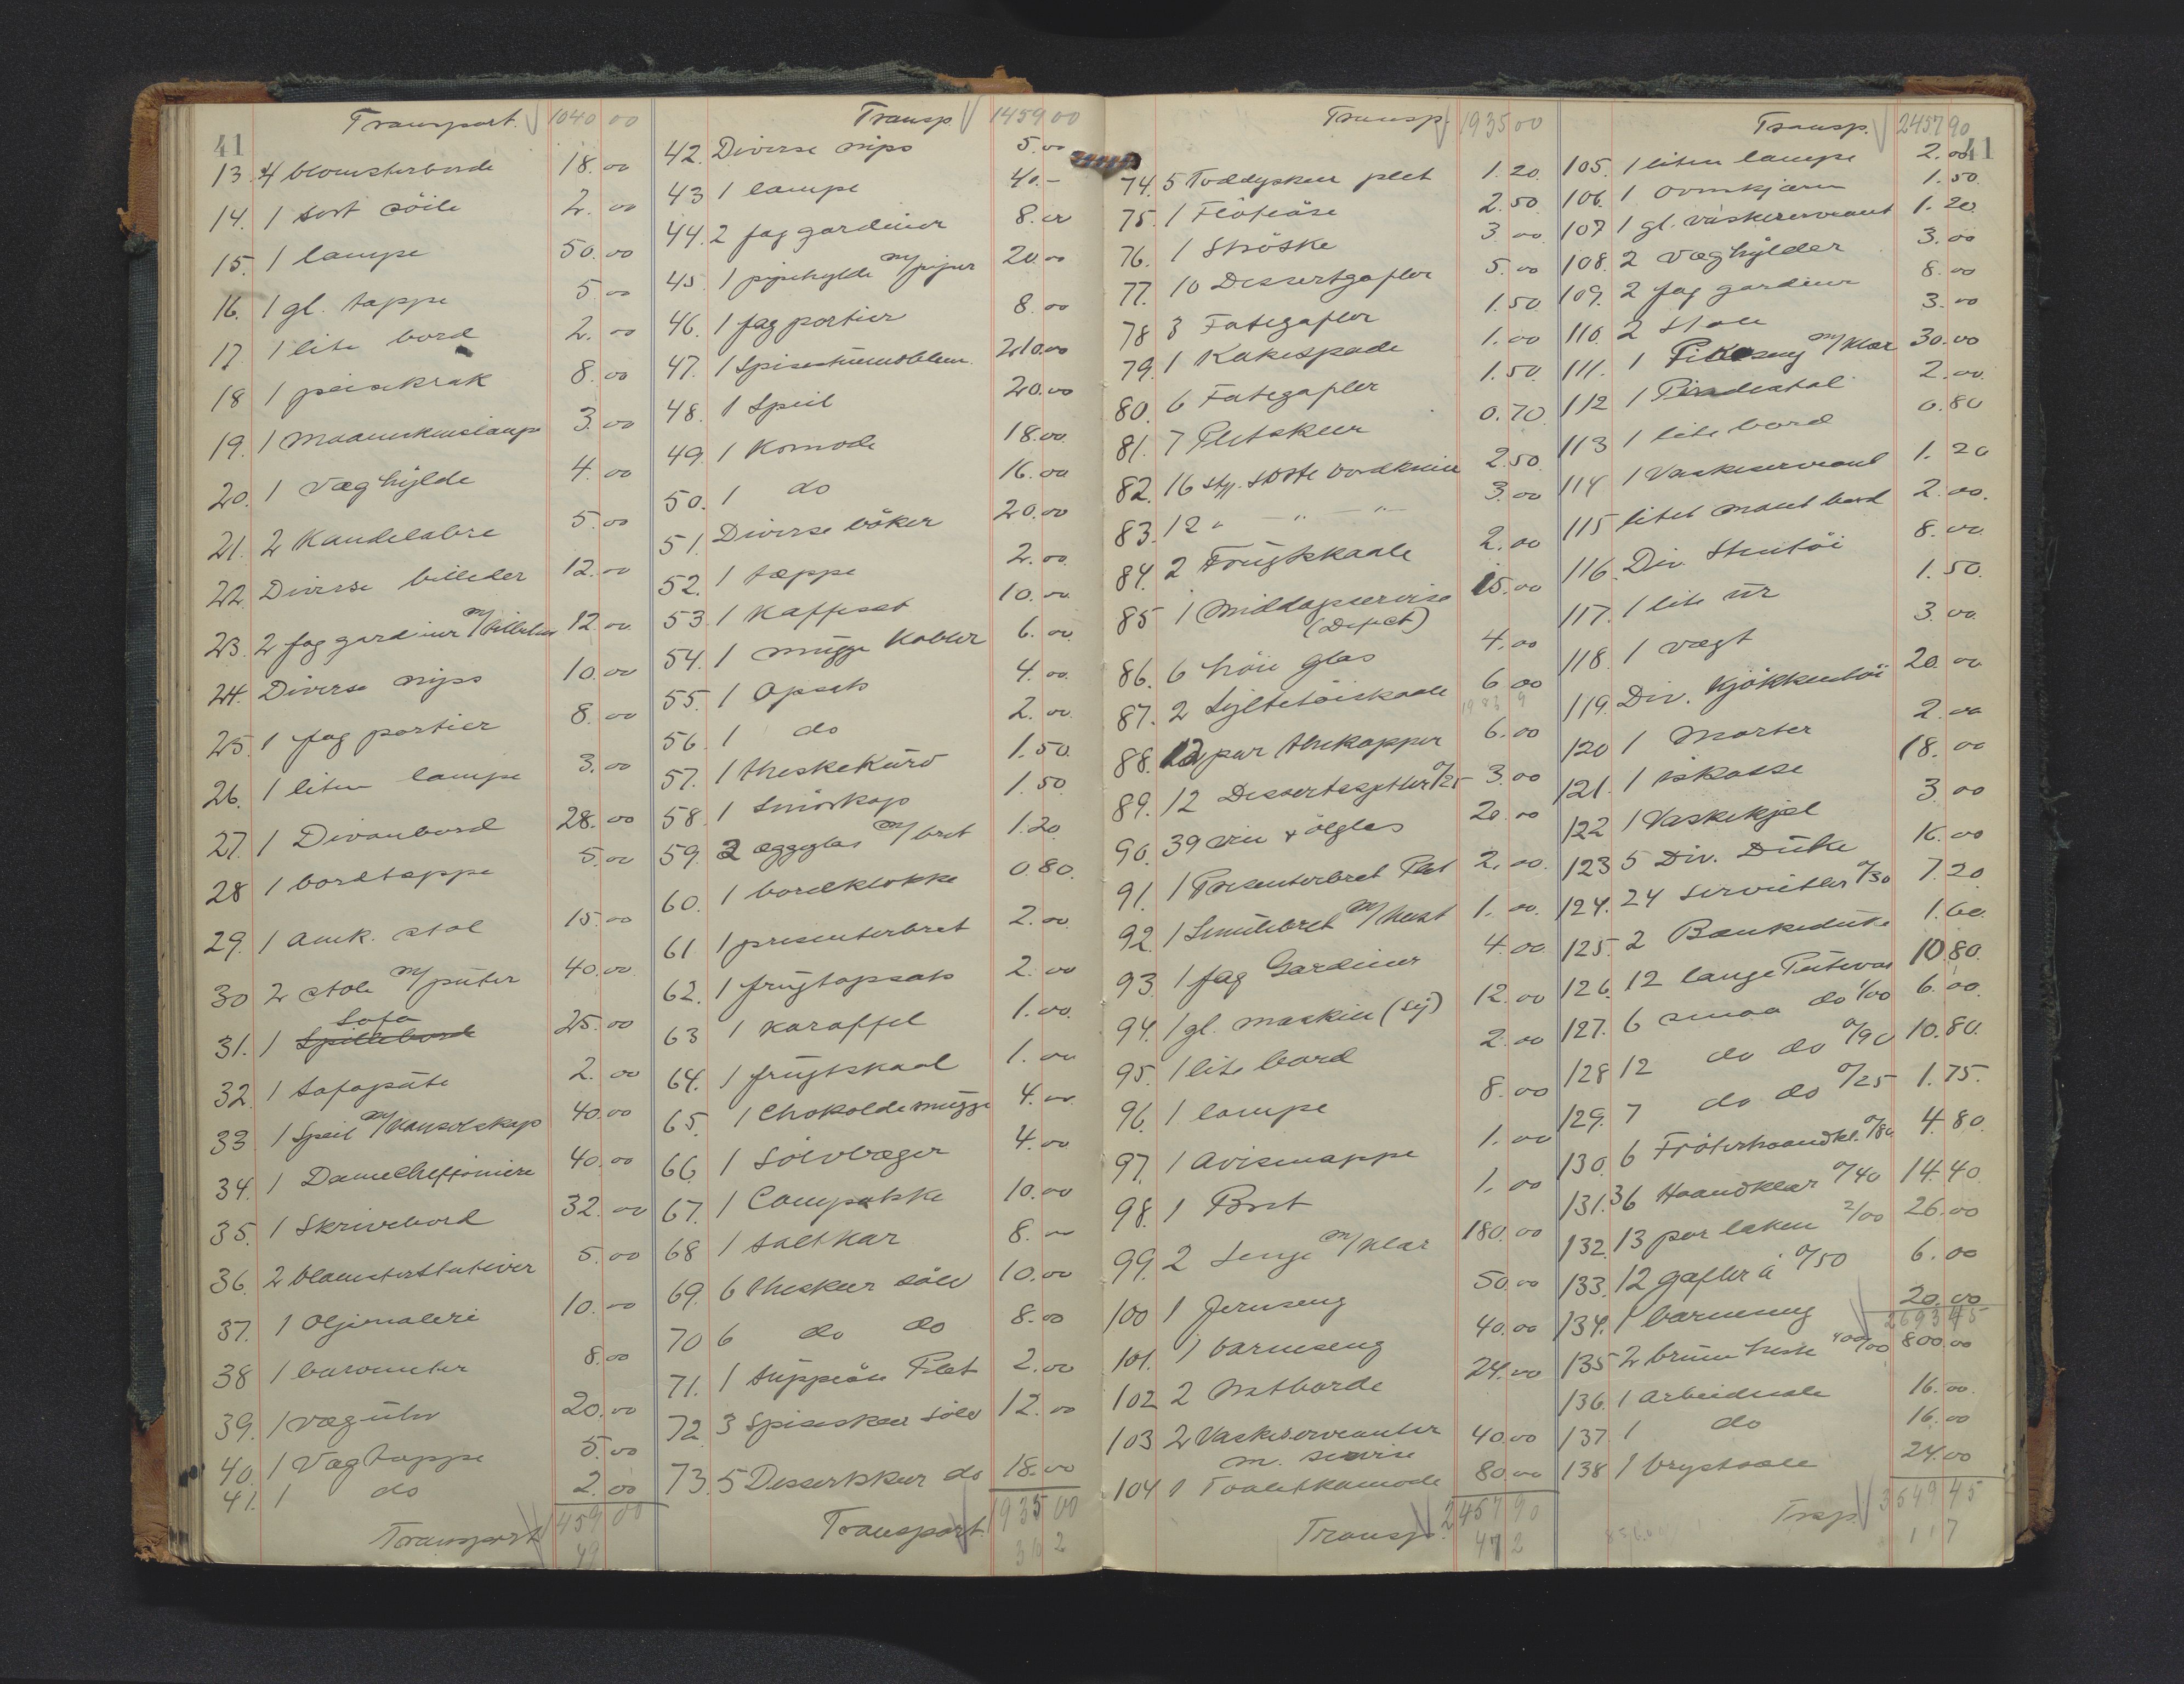 41
Transport. 1040 00
13. 4 blomsterborde 18.00
14. 1 sort söile 2.00
15. 1 lampe 50.00
16. 1 gl. tæppe 5.00
17. 1 lite bord 2.00
18 1 peisekrak 8.00
19. 1 Maaneskinslampe 3.00
20. 1 væghylde 4.00
21. 2 Kandelabre 5.00
22. Diverse billeder 12.00
23. 2 fag gardiner m/ 12.00
24. Diverse nips 10.00
25. 1 fag portier 8.00
26. 1 liten lampe 3.00
27. 1 Divanbord 28.00
28 1 bordtæppe 5.00
29. 1 amk. stol 15.00
30 2 stole m/ puter 40.00
31. 1 Spillebord Sofa 25.00
32. 1 sofapute 2.00
33. 1 Speil m/ Konsolskap 40.00
34. 1 Damecheffoniere 40.00
35. 1 Skrivebord 32.00
36. 2 blomsterstativer 5.00
37. 1 Oljemaleri 10.00
38 1 barometer 8.00
39. 1 væguhr 20.00
40. 1 Vægtæppe 5.00
41. 1 do 2.00
Transport 1459 00
49
Transp. 1459 00
42. Diverse nips 5.00
43 1 lampe 40.-
44. 2 fag gardiner 8.00
45. 1 pipehylde m/ piper 20.00
46. 1 fag portier 8.00
47. 1 Spisestuemöblem. 210.00
48. 1 Speil 20.00
49. 1 Komode 18.00
50. 1 do 16.00
51. Diverse böker 20.00
52. 1 tæppe 2.00
53. 1 Kaffesæt 10.00
54. 1 mugge Kobber 6.00
55. 1 Opsats 4.00
56. 1 do 2.00
57. 1 theskekurv 1.50
58. 1 Smörkop 1.50
59. 2 æggeglas m/ bret 1.20
60. 1 bordklokke 0.80
61 1 presenterbret 2.00
62. 1 frugtopsats 2.00
63 1 karaffel 1.00
64. 1 frugtskaal 1.00
65. 1 Chokolademugge 4.00
66. 1 Sölvbæger 4.00
67. 1 Compotske 10.00
68 1 saltkar 8.00
69. 6 theskeer sölv 10.00
70 6 do do 8.00
71. 1 suppeöse Plet 2.00
72. 3 Spiseskeer sölv 12.00
73. 5 Dessertskeer do 18.00
Transport. 1935 00
302
Transp. 1935 00
74. 5 Toddyskeer plet 1.20
75. 1 Flöteöse 2.50
76. 1 Ströske 3.00
77. 10 Dessertgafler 5.00
78 3 Fatsgafler 1.50
79. 1 Kakespade 1.00
80. 6 Fatsgafler 1.50
81. 7 Pletskeer 0.70
82. 16 stk. större bordknive 2.50
83. 12 " - " - " - 3.00
84. 2 Frugtskaale 2.00
85 1 Middagsservise 15.00
(Defect)
86. 6 höie glas 4.00
87. 2 Syltetöiskaale 6.00
1983 9
88. 12 par thekopper 6.00
89. 12 Dessertasjetter 0/25 3.00
90. 39 vin & ölglas 20.00
91. 1 Presenterbret Plet 2.00
92. 1 Smulebret m/ kost 1.00
93. 1 fag Gardiner 4.00
94. 1 gl. maskin (sy) 12.00
95. 1 lite bord 2.00
96. 1 lampe 8.00
97. 1 Avismappe 1.00
98. 1 Bret 1.00
99. 2 Senge m/ klær 180.00
100 1 Jernseng 50.00
101. 1 barneseng 40.00
102 2 Natborde 24.00
103 2 Vaskeservanter 40.00
m. servise
104 1 Toaletkomode 80.00
Transp. 2457 90
472
41
Transp. 2457 90
105. 1 liten lampe 2.00
106. 1 ovnskjærm 1.50
107 1 gl. vaskeservant 1.20
108. 2 væghylder 3.00
109. 2 fag gardiner 8.00
110. 2 Stole 3.00
111. 1 Pikeseng m/ klær 30.00
112 1 Pindestol 2.00
113 1 lite bord 0.80
114 1 Vaskeservant 1.20
115 litet malet bord 2.00
116. Div. Stentöi 8.00
117. 1 lite ur 1.50
118. 1 vegt 3.00
119. Div. Kjökkentöi 20.00
120 1 Morter 2.00
121. 1 iskasse 18.00
122 1 Vaskekjel 3.00
123 5 Div. Duke 16.00
124. 24 servietter 0/30 7.20
125. 2 Bænkeduke 1.60
126. 12 lange Putevar 10.80
127. 6 smaa do 1/00 6.00
128 12 do do 0/90 10.80
129. 7 do do 0/25 1.75
130. 6 Fröterhaandkl. 0/80 4.80
131. 36 Haandklær 0/40 14.40
132. 13 par laken 2/00 26.00
133. 12 gafler á 0/50 6.00
134. 1 barneseng 20.00
2693 45
135 2 brune heste 400/00 800.00
136. 1 arbeidssele 16.00
137 1 do 16.00
138 1 brystsele 24.00
Trsp. 3549 45
117